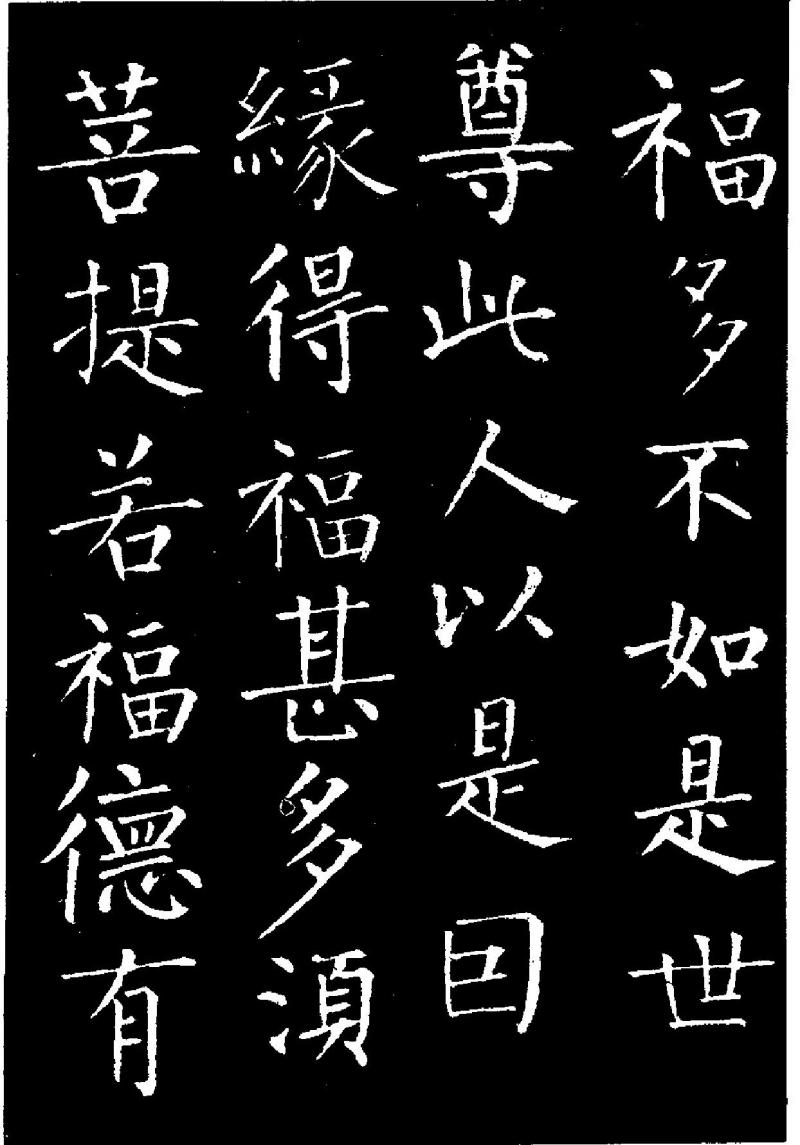 福多不如是世
尊此人以是囙
緣得福甚多湏
菩提若福德有